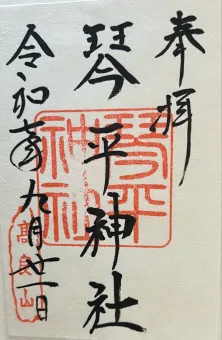 奉拝
琴平神社
令和六年九月廿一日
琴平神社
高良山